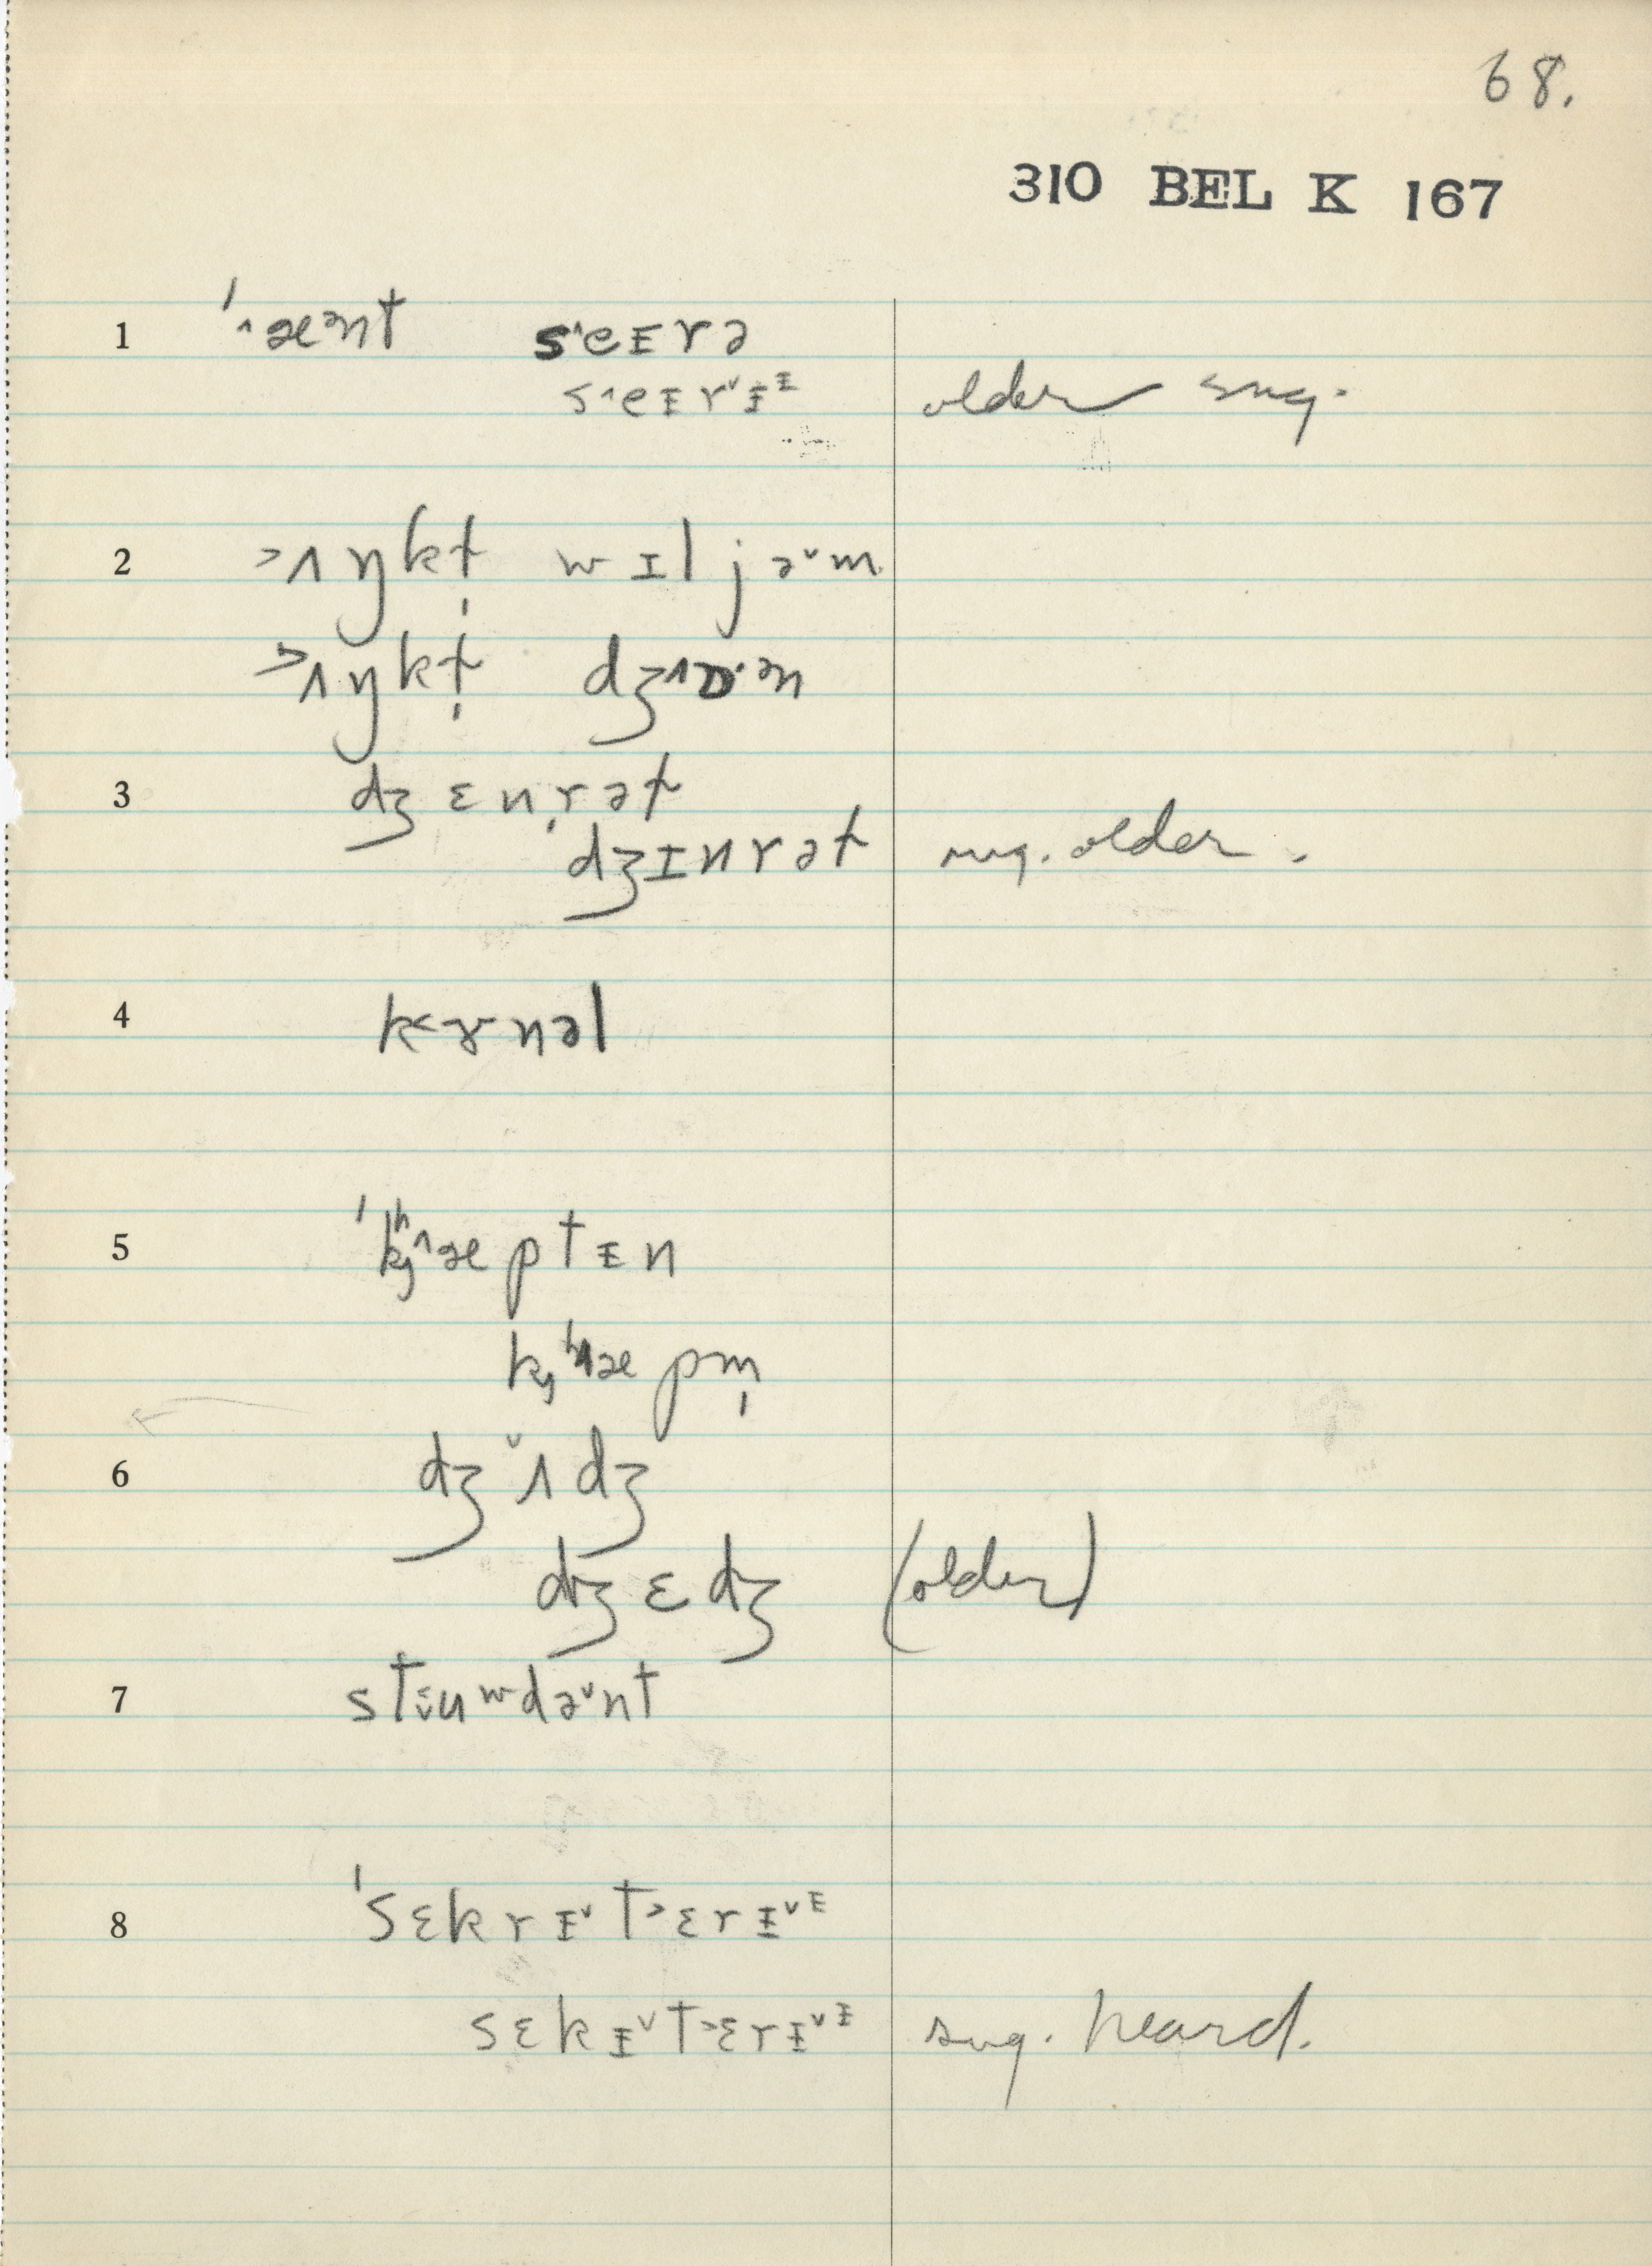 68.
310 BEL K 167
1 ˈ^æᵊnt s^eɪrə
s^eɪrᵛᵻᶦ older sug.
2 >ʌŋkɫ̩ wɪljəᵛm
>ʌŋkɫ̩ dʒ^ɒ·ᵊn
3 dʒɛnr̩əɫ
dʒɪnrəɫ sug. older.
4 k<ɚnəl
5 ˈkʰ^æptᵻn
kʰ^æpm̩
6 dʒᵛʌdʒ
dʒɛdʒ (older)
7 stiuʷdəᵛnt
8 ˈsɛkrᵻᵛt>ɛrᵻᵛᶦ
sɛkᵻᵛt>ɛrᵻᵛᶦ sug. heard.